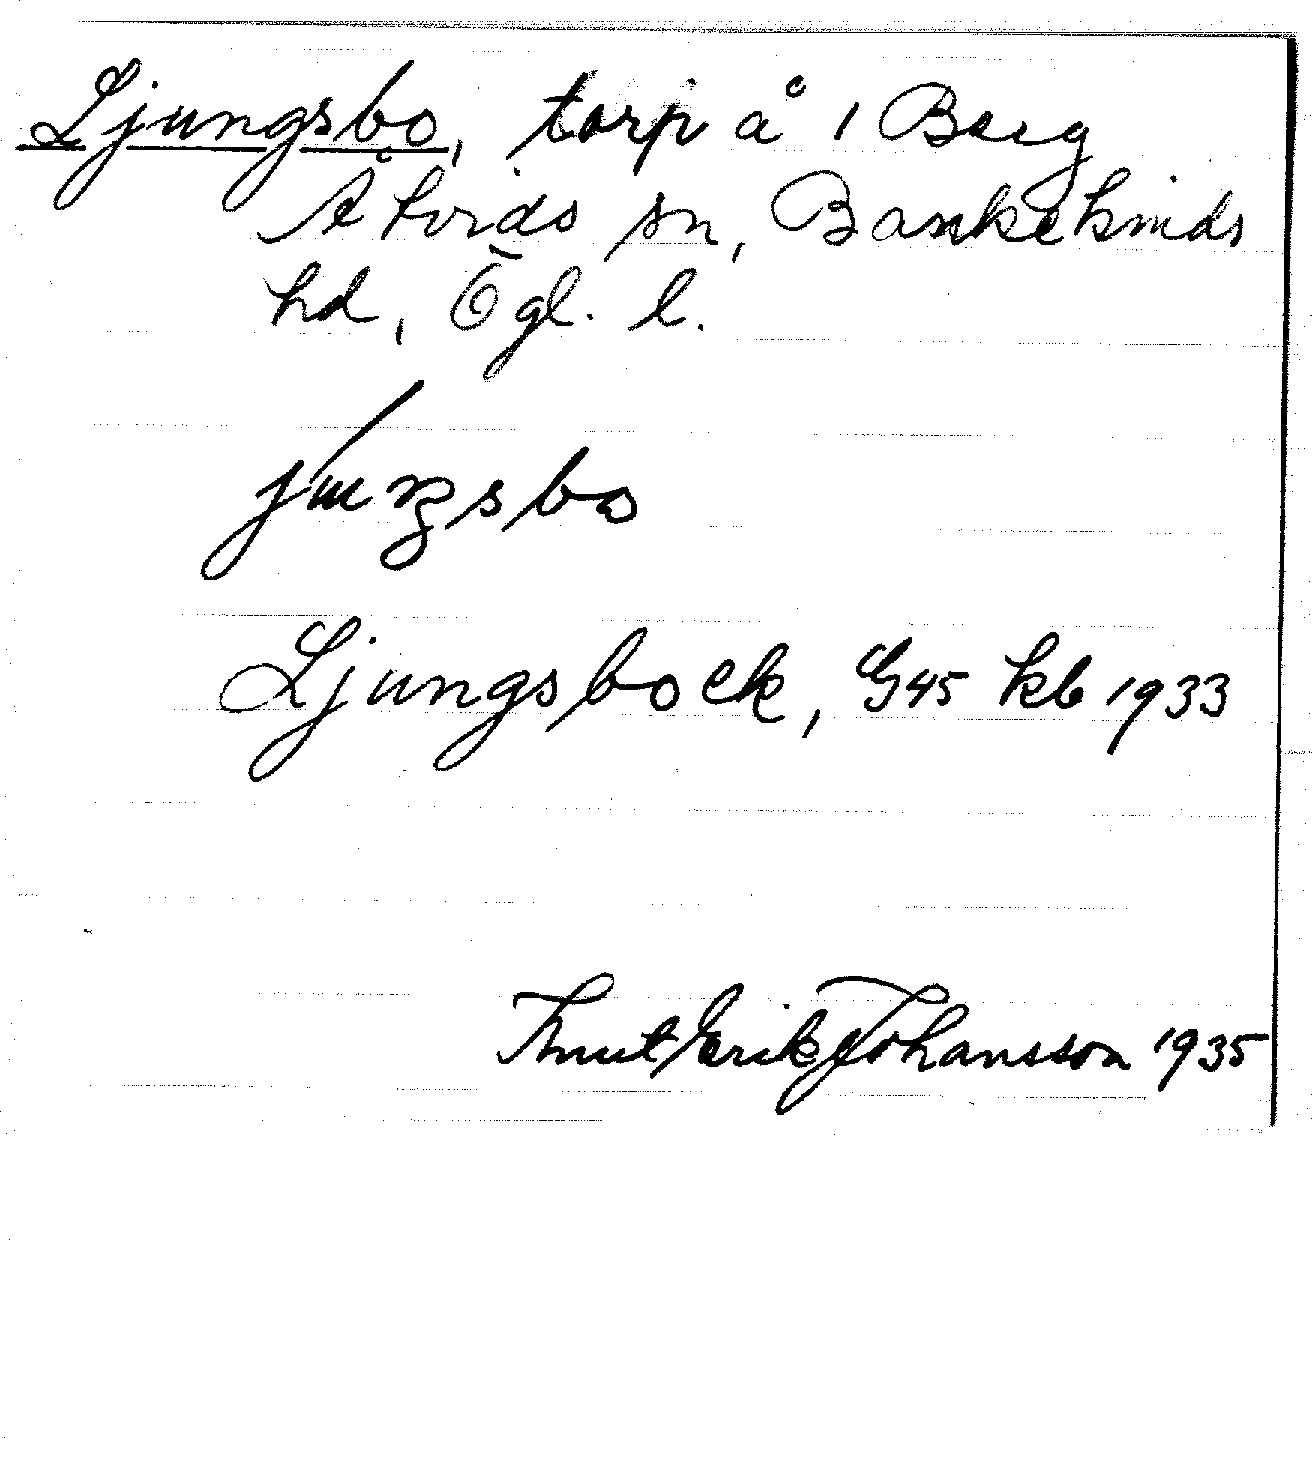 Ljungsbo, torp å 1 Borg
Åtvids sn, Bankekinds
hd, Ögl. l.
Ljungsbo ek, G45 kb 1933
Knut Erik Johansson 1935